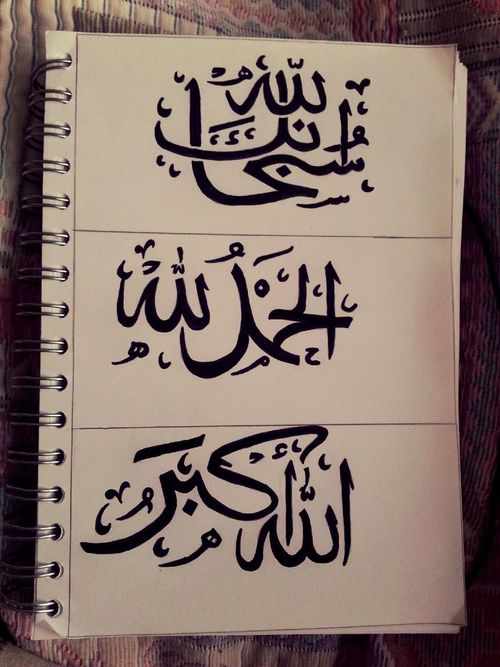 سبحانك الله
الحمدُ لله
الله أكبَر